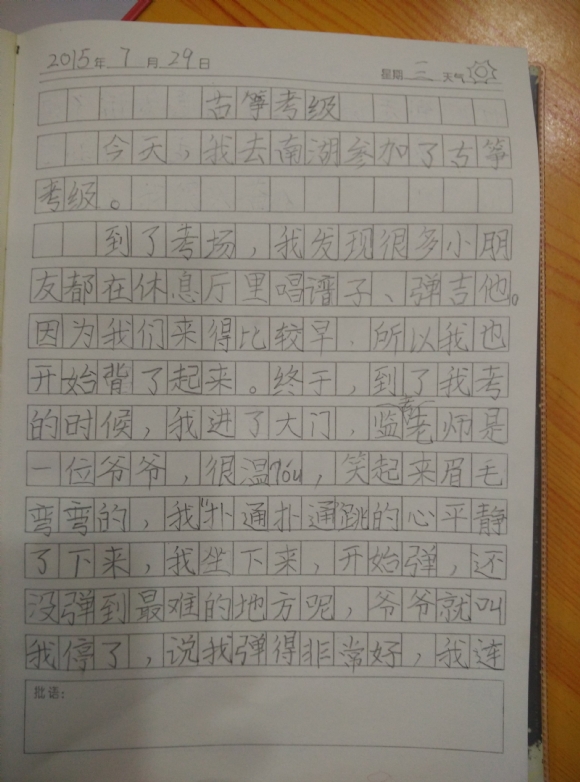 2015年7月29日 星期三 天气
古筝考级
今天，我去南湖参加了古筝
考级。
到了考场，我发现很多小朋
友都在休息厅里唱谱子、弹吉他。
因为我们来得比较早，所以我也
开始背了起来。终于，到了我考
的时候，我进了大门，监考老师是
一位爷爷，很温róu，笑起来眉毛
弯弯的，我“扑通扑通”跳的心平静
了下来，我坐下来，开始弹，还
没弹到最难的地方呢，爷爷就叫
我停了，说我弹得非常好，我连
批语：